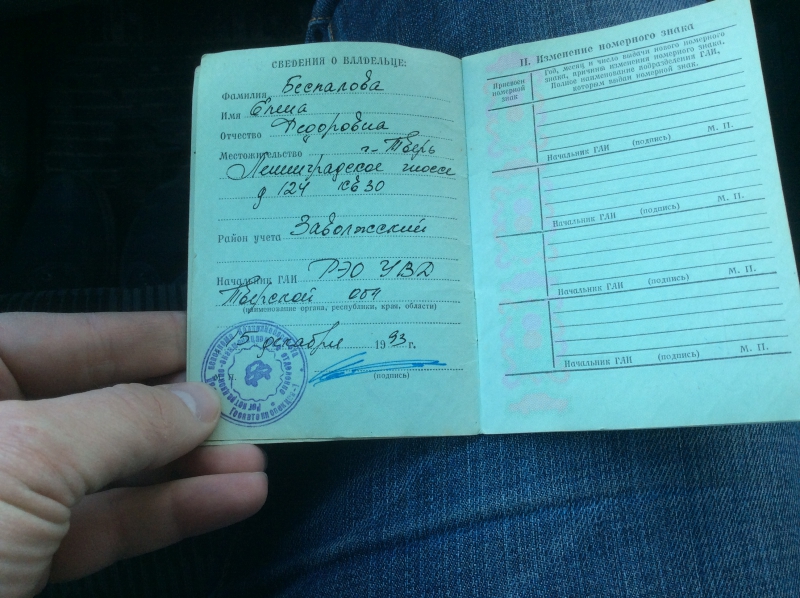 СВЕДЕНИЯ О ВЛАДЕЛЬЦЕ:
Фамилия Беспалова
Имя Елена
Отчество Федоровна
Местожительство г. Тверь
Ленинградское шоссе
д 124 кв 30
Район учета Заволжский
Начальник ГАИ РЭО УВД
Тверской обл
(наименование органа, республики, края, области)
5 декабря 1993 г.
(подпись)
II. Изменение номерного знака
Присвоен номерной знак
Год, месяц и число выдачи нового номерного
знака, причина изменения номерного знака.
Полное наименование подразделения ГАИ,
которым выдан номерной знак.
Начальник ГАИ (подпись) М. П.
Начальник ГАИ (подпись) М. П.
Начальник ГАИ (подпись) М. П.
Начальник ГАИ (подпись) М. П.